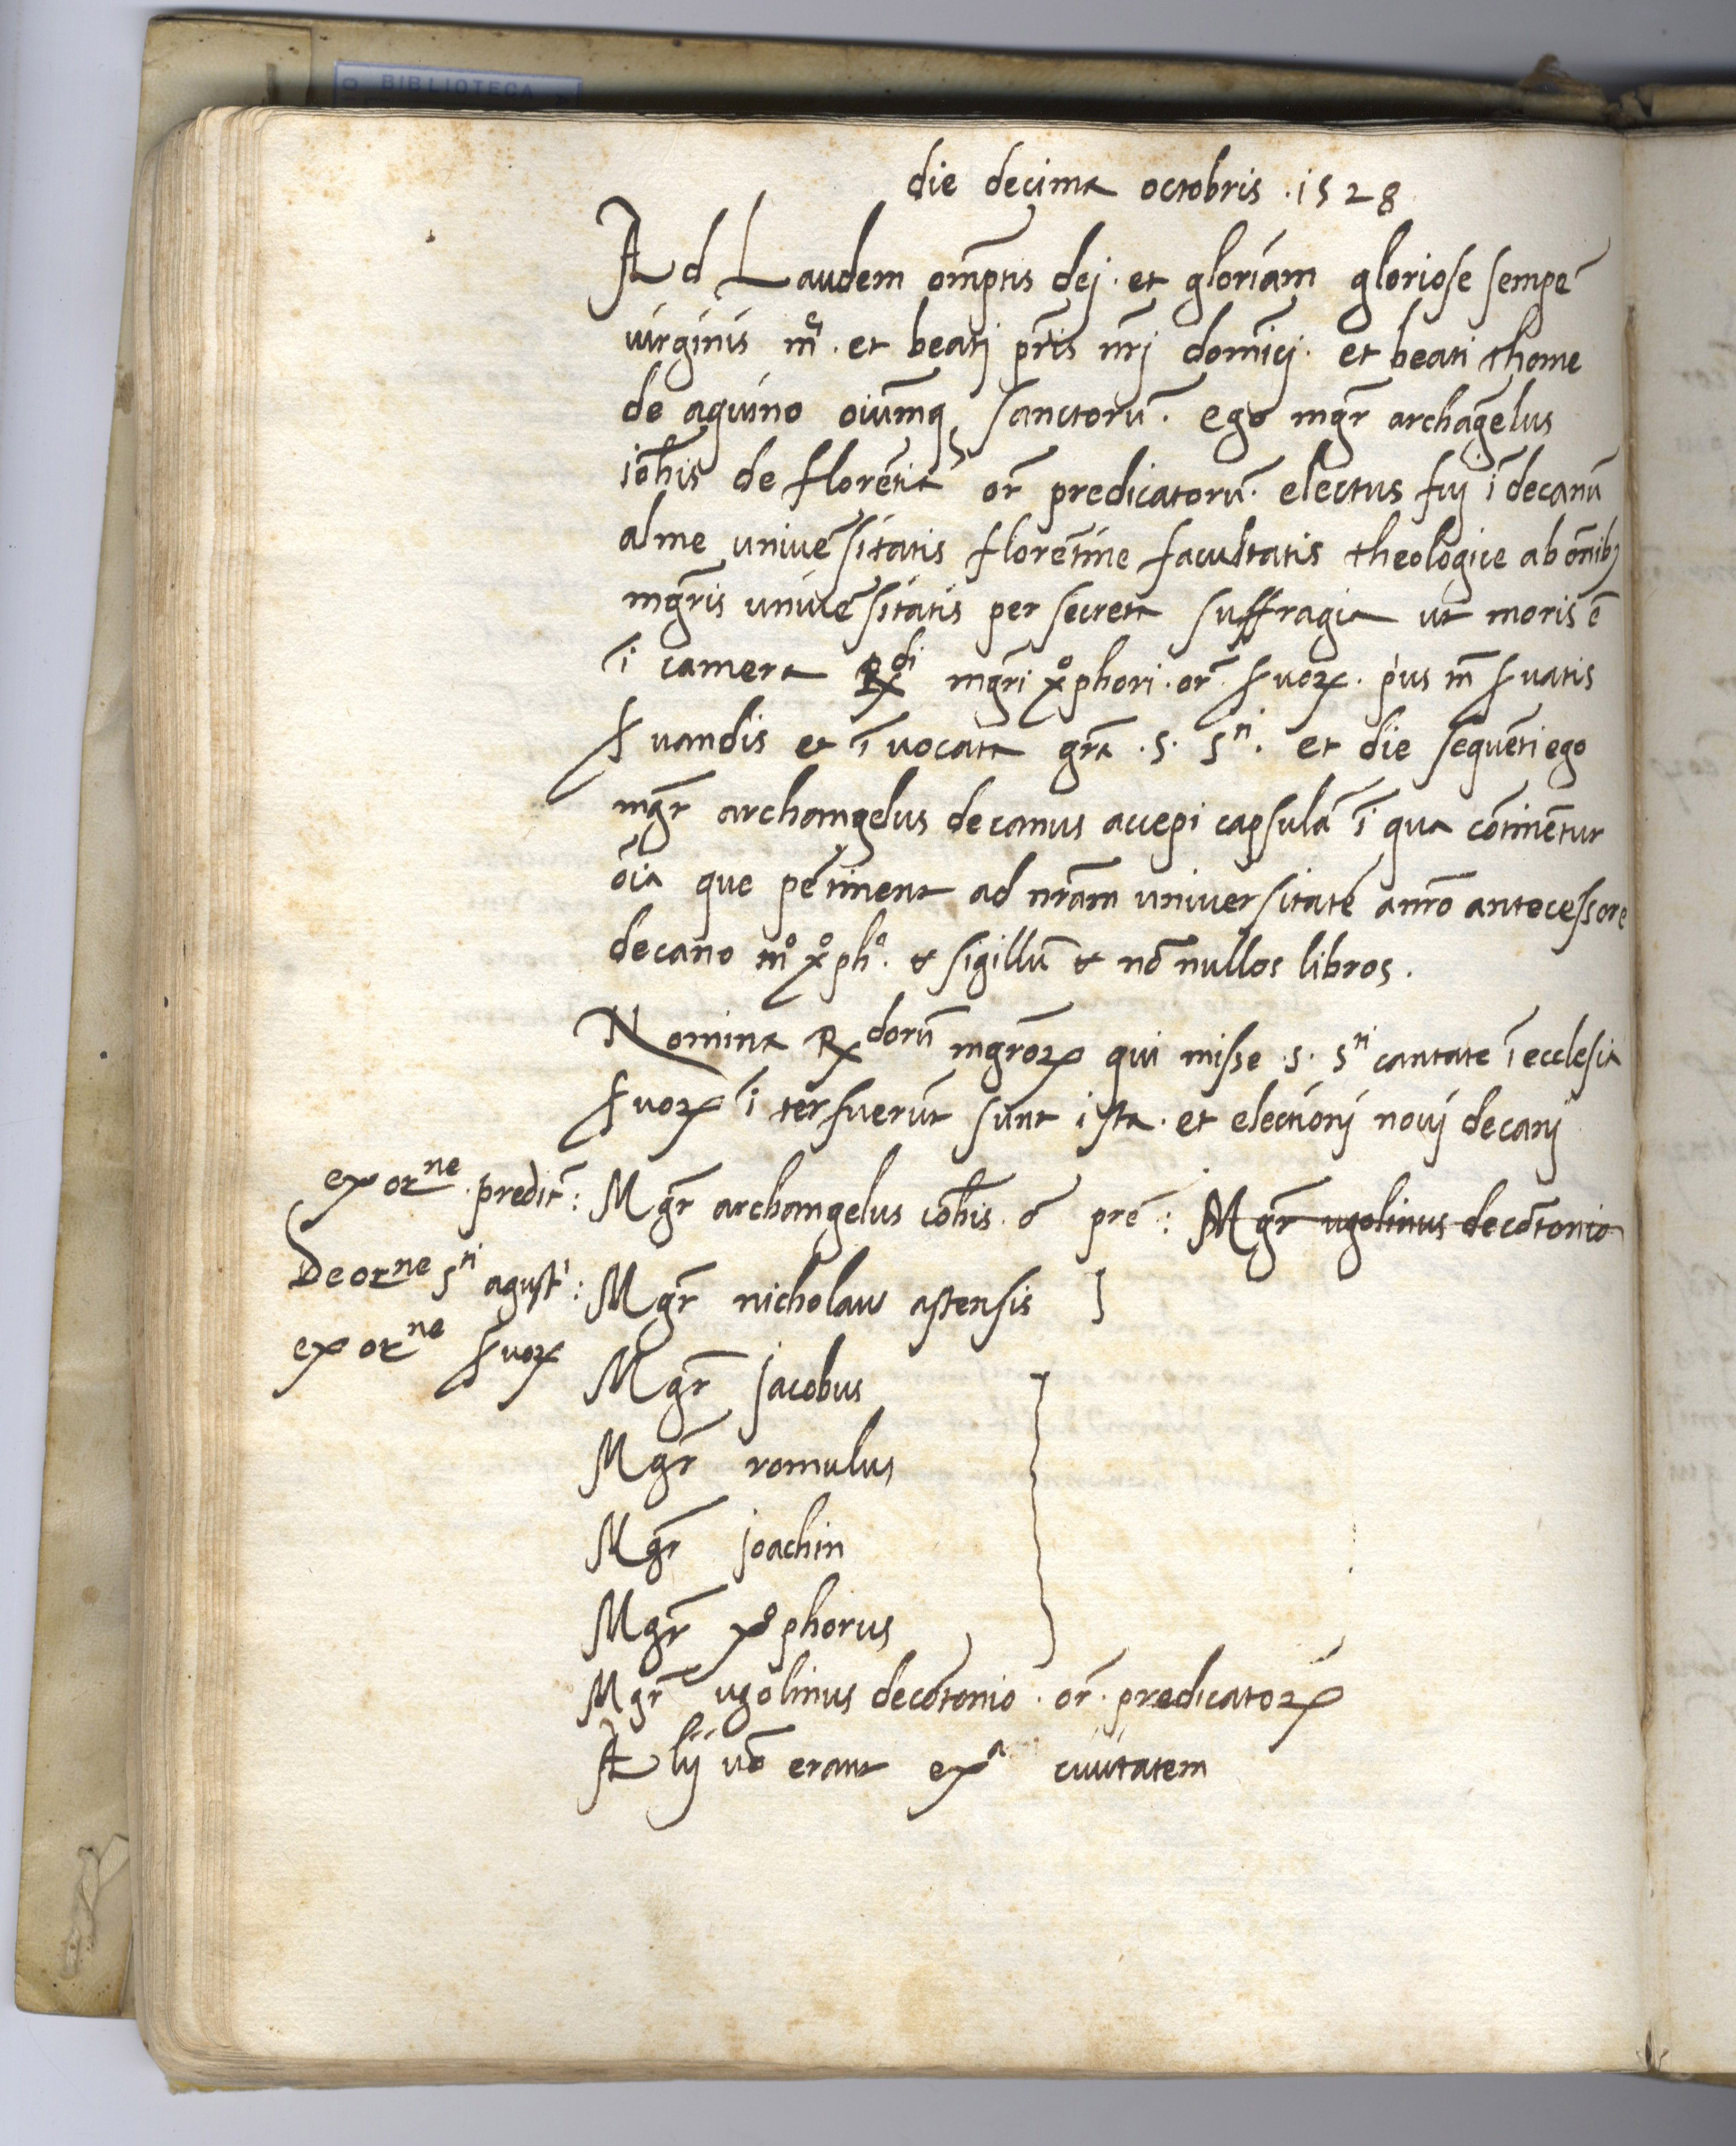 BIBLIOTECA
die decima octobris .1528
Ad Laudem om̄ptis dej. et gloriam gloriose semper̄
virginis m̄e. et beatj pr̄is nr̄j dom̄icj. et beati thome
de aquino oiūmq3 sanctorū. ego mgr̄ archāgelus
ioh̄is de florētia or̄ predicatorū. electus fuj ī decanū
alme univēsitatis florētine facultatis theologice ab om̄ib3
mgr̄is univēsitatis per secreta suffragia ut moris ē
ī camera Rdi mgr̄i xophori. or̄. ſuoꝝ. p'us m̄ ſuatis
ſuandis et īvocata gr̄a .s. sti. et die sequēti ego
mgr̄ archangelus decanus accepi capsulā ī qua cōtinētur
ōia que pētinent ad nr̄am universitatē a nr̄o antecessore
decano mo xopho. & sigillū & nō nullos libros.
Nomina Rdorū mgr̄oꝝ qui misse .s. sti cantate ī ecclesia
ſuoꝝ īterfuerūt sunt ista. et electionj novj decanj
ex orne. predic̄: Mgr̄ archangelus ioh̄is. ō prē: Mgr̄ ugolinus de cōtonio
De orne sti agust': Mgr̄ nicholaus astensis ]
ex orne ſuoꝝ Mgr̄ jacobus
Mgr̄ romulus
Mgr̄ joachin
Mgr̄ xophorus
Mgr̄ ugolinus de cōtonio. or̄. predicatoꝝ
Alij vō erant exa civitatem